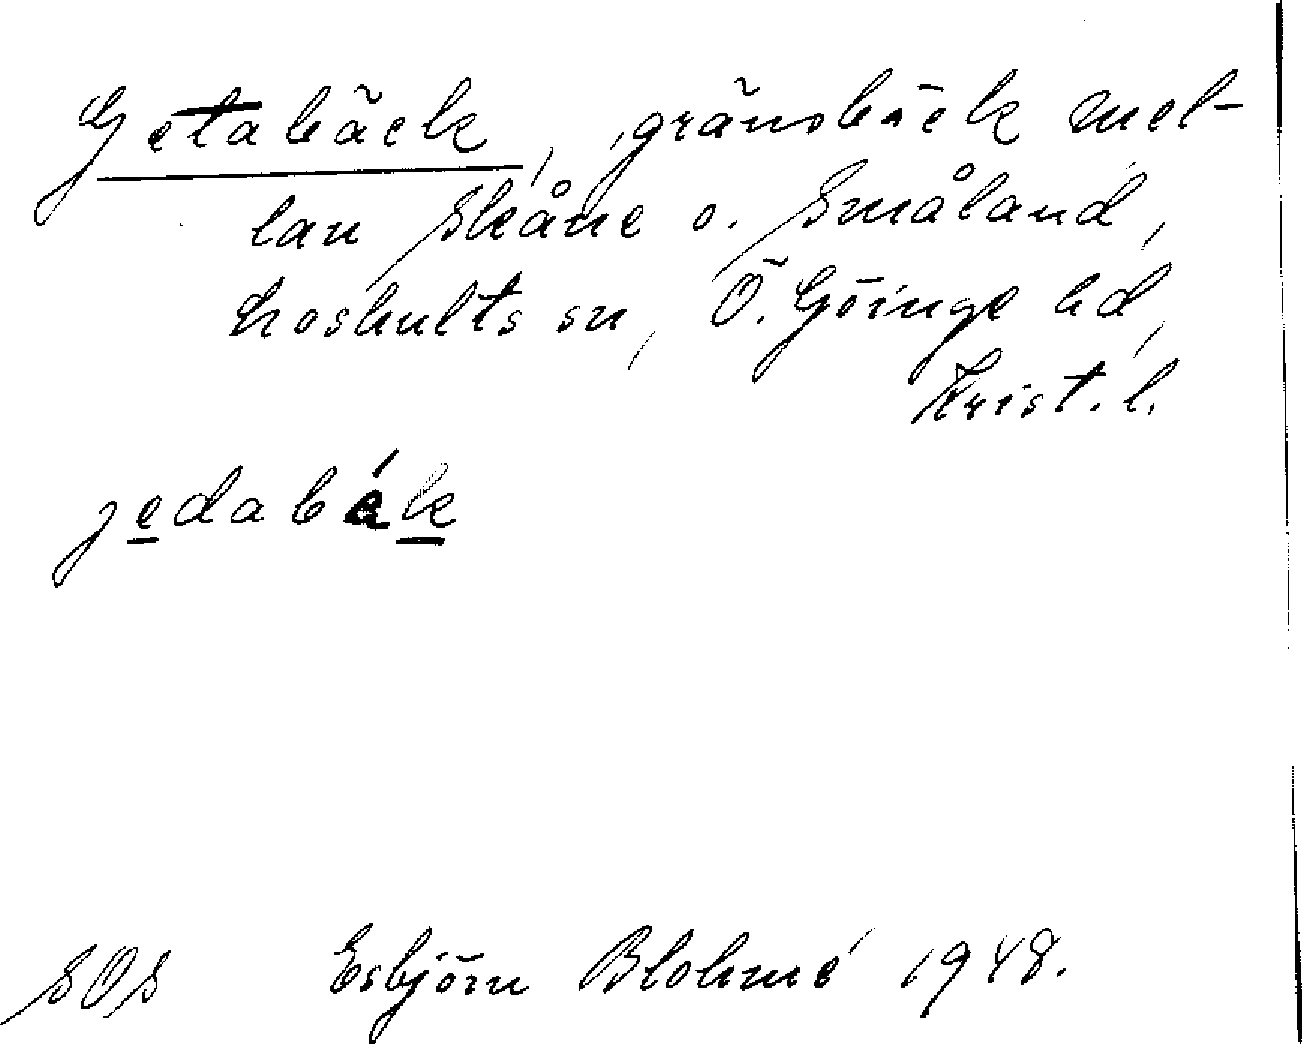 Getabäck, gränsbäck mel-
lan Skåne o. Småland,
Loshults sn, Ö. Göinge hd,
Krist. l.
jedabák
SOS Esbjörn Blohmé 1948.